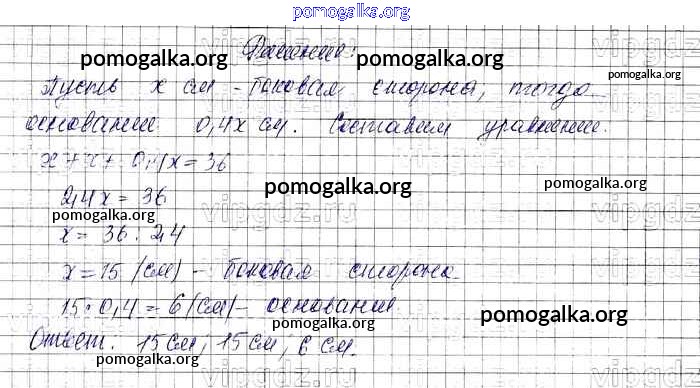 pomogalka.org
Решение:
pomogalka.org pomogalka.org vipgdz.ru
Пусть x см - боковая сторона, тогда
pomogalka.org
основание 0,4x см. Составим уравнение.
x + x + 0,4x = 36
pomogalka.org pomogalka.org
2,4x = 36
pomogalka.org vipgdz.ru
x = 36 : 2,4
x = 15 (см) - боковая сторона
15 · 0,4 = 6 (см) - основание
pomogalka.org pomogalka.org
Ответ: 15 см, 15 см, 6 см.
pomogalka.org